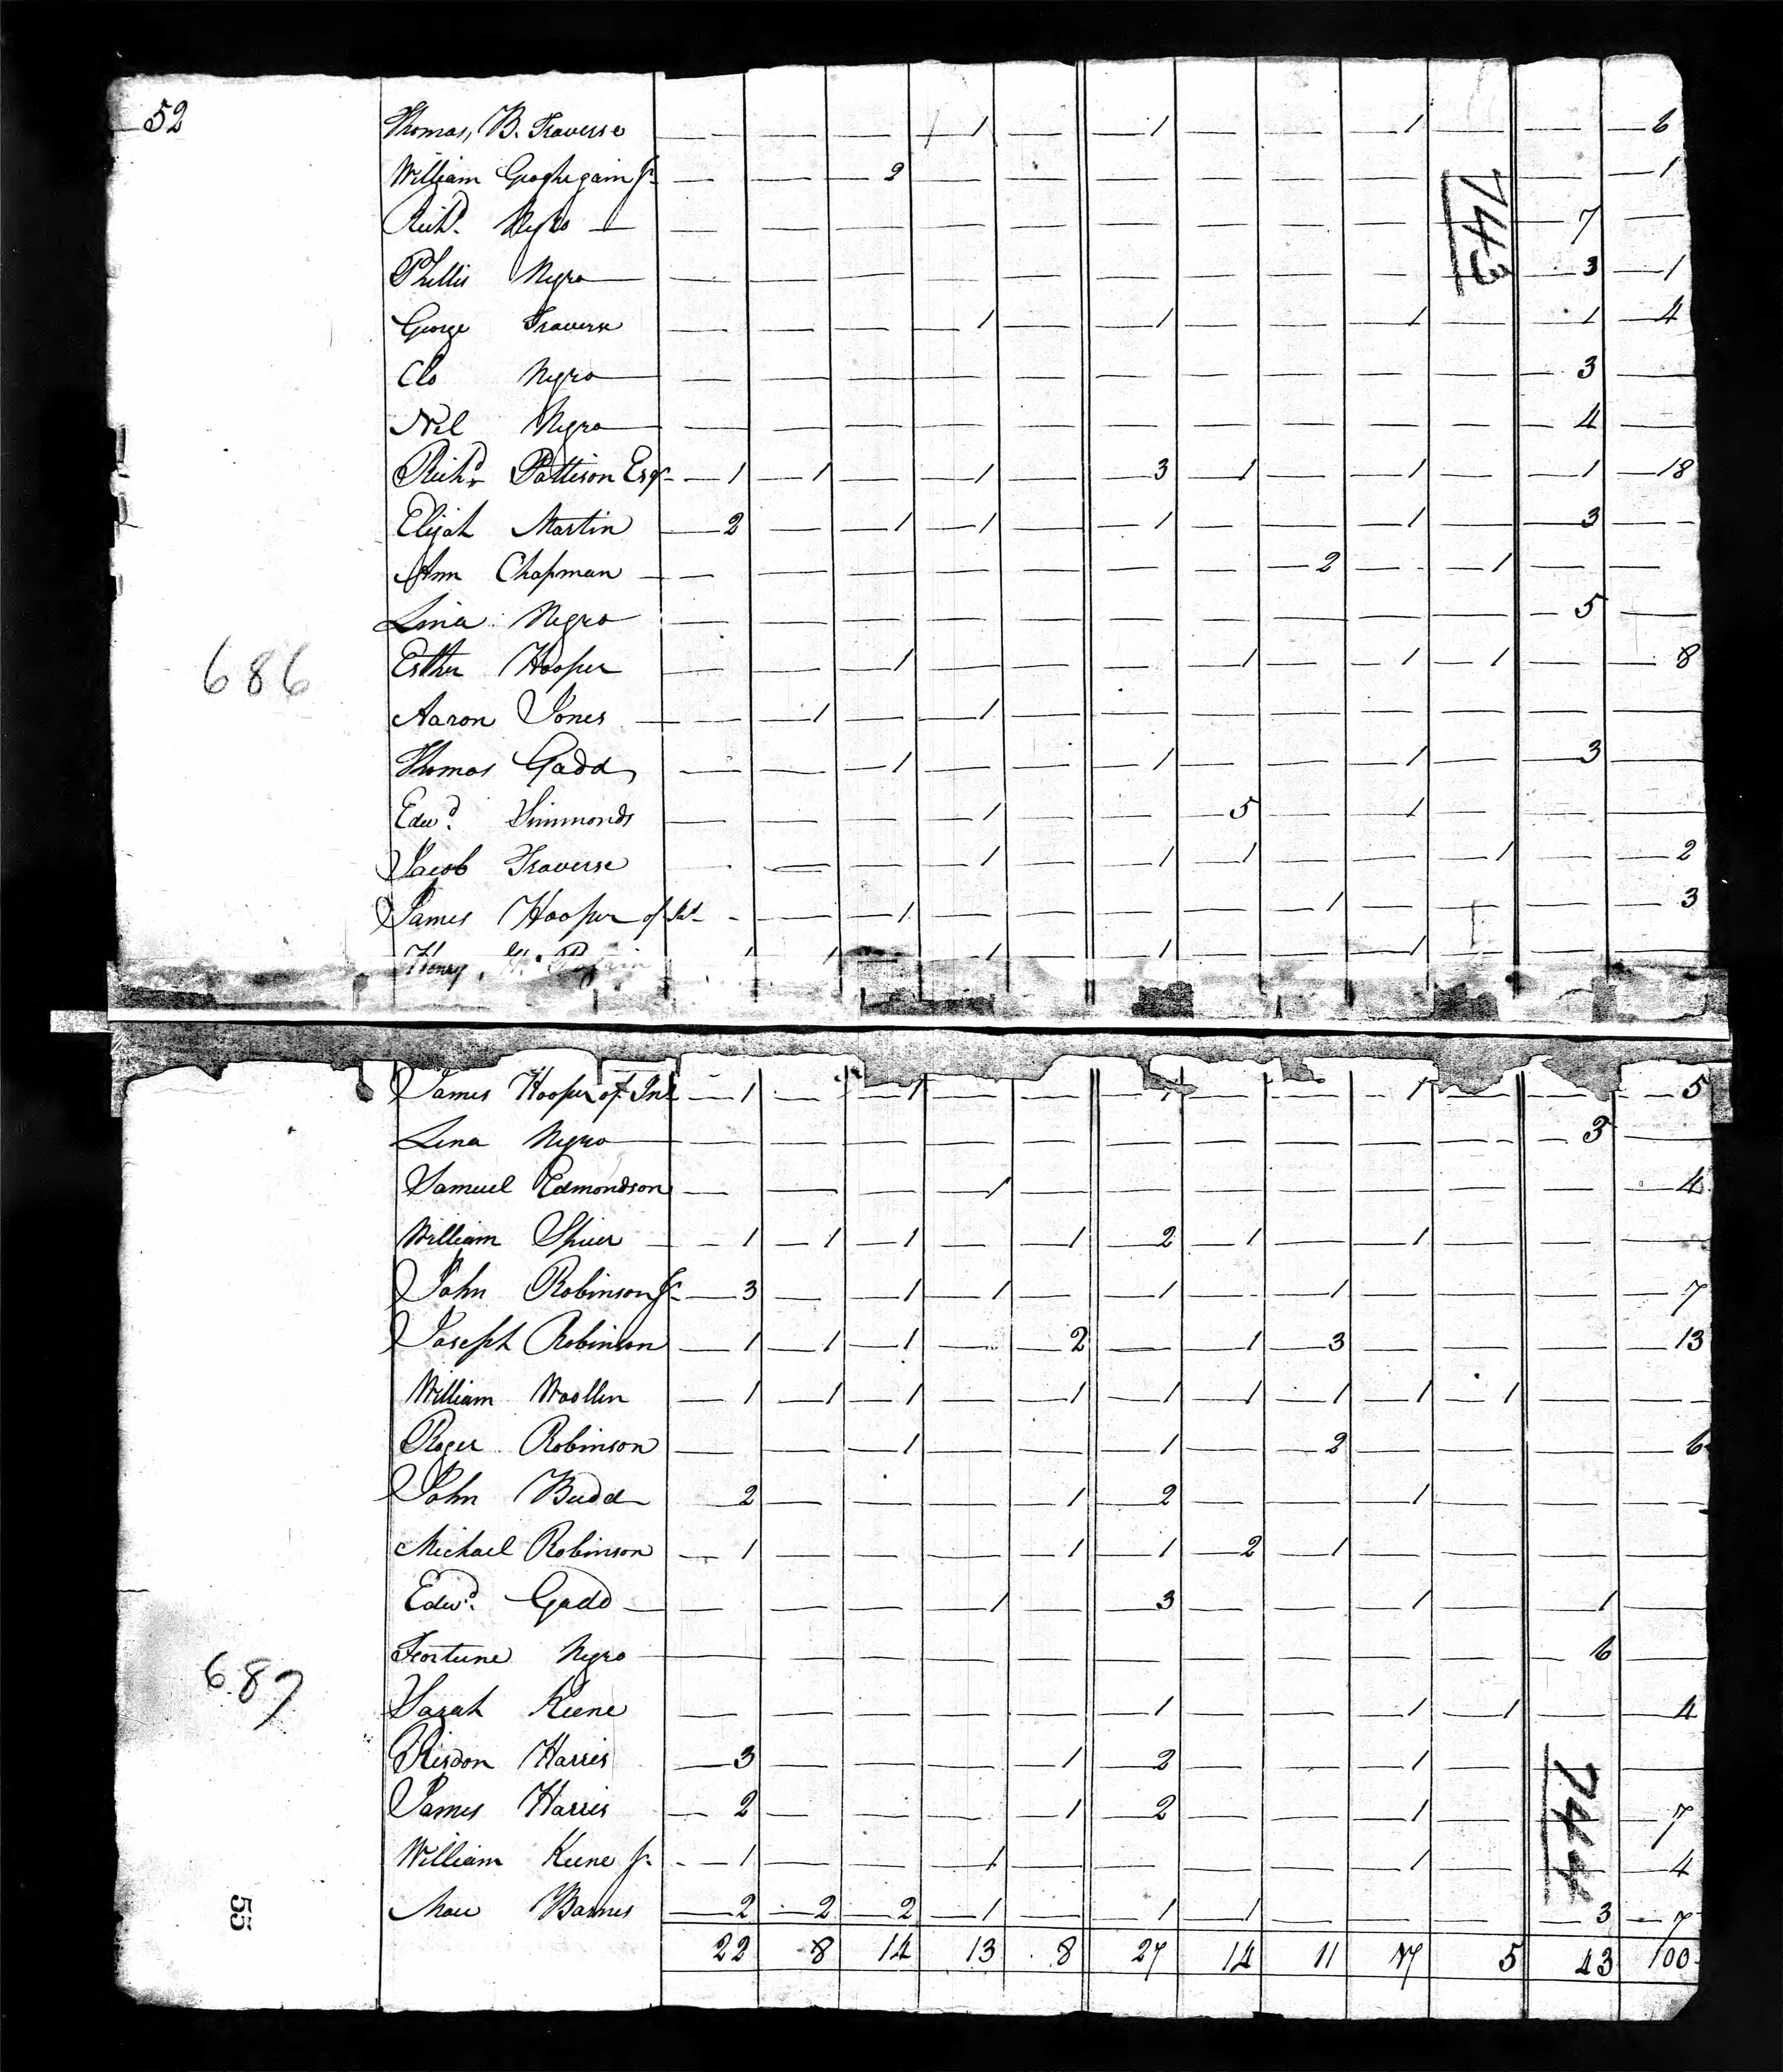 52
Thomas, B. Traverse — — — 1 — 1 — — 1 — — 6
William Geoghegain Jr — — 2 — — — — — — — — 1
Richd. Negro — — — — — — — — — — — 7 —
743
Phillis Negro — — — — — — — — — — — 3 1
George Traverse — — — 1 — 1 — — 1 — 1 4
Clo Negro — — — — — — — — — — — 3 —
Nel Negro — — — — — — — — — — — 4 —
Richd. Pattison Esqr. 1 1 — 1 — 3 1 — 1 — 1 18
Elijah Martin 2 — 1 1 — 1 — — 1 — 3 —
Ann Chapman — — — — — — — 2 — 1 — —
Lina Negro — — — — — — — — — — 5 —
686
Esther Hooper — — 1 — — — 1 — 1 1 — 8
Aaron Jones — 1 — 1 — — — — — — — —
Thomas Gadd — — 1 — — 1 — — 1 — 3 —
Edwd. Simmonds — — — 1 — — 5 — 1 — — —
Jacob Traverse — — — 1 — 1 1 — — 1 — 2
James Hooper of — — 1 — — — — 1 — — — 3
Henry 1 1 1 1 1
James Hooper of Inl 1 — 1 — — 1 — — 1 — — 5
Lina Negro — — — — — — — — — — 3 —
Samuel Edmondson — — — 1 — — — — — — — 4
William Spicer 1 1 1 — 1 2 1 — 1 — — —
John Robinson Jr. 3 — 1 1 — 1 — 1 — — — 7
Joseph Robinson 1 1 1 — 2 — 1 3 — — — 13
William Woollen 1 1 1 — 1 1 1 1 1 1 — —
Roger Robinson — — 1 — — 1 — 2 — — — 6
John Budd 2 — — — 1 2 — — 1 — — —
Michael Robinson 1 — — — 1 1 2 1 — — — —
Edwd. Gadd — — — 1 — 3 — — 1 — 1 —
Fortune Negro — — — — — — — — — — 6 —
687
Sarah Keene — — — — — 1 — — 1 1 — 4
Risdon Harris 3 — — — 1 2 — — 1 — — —
744
James Harris 2 — — — 1 2 — — 1 — — 7
William Keene Jr. 1 — — 1 — — — — 1 — — 4
55
Barnes 2 2 2 1 — 1 1 — — — 3 7
22 8 14 13 8 27 14 11 17 5 43 100